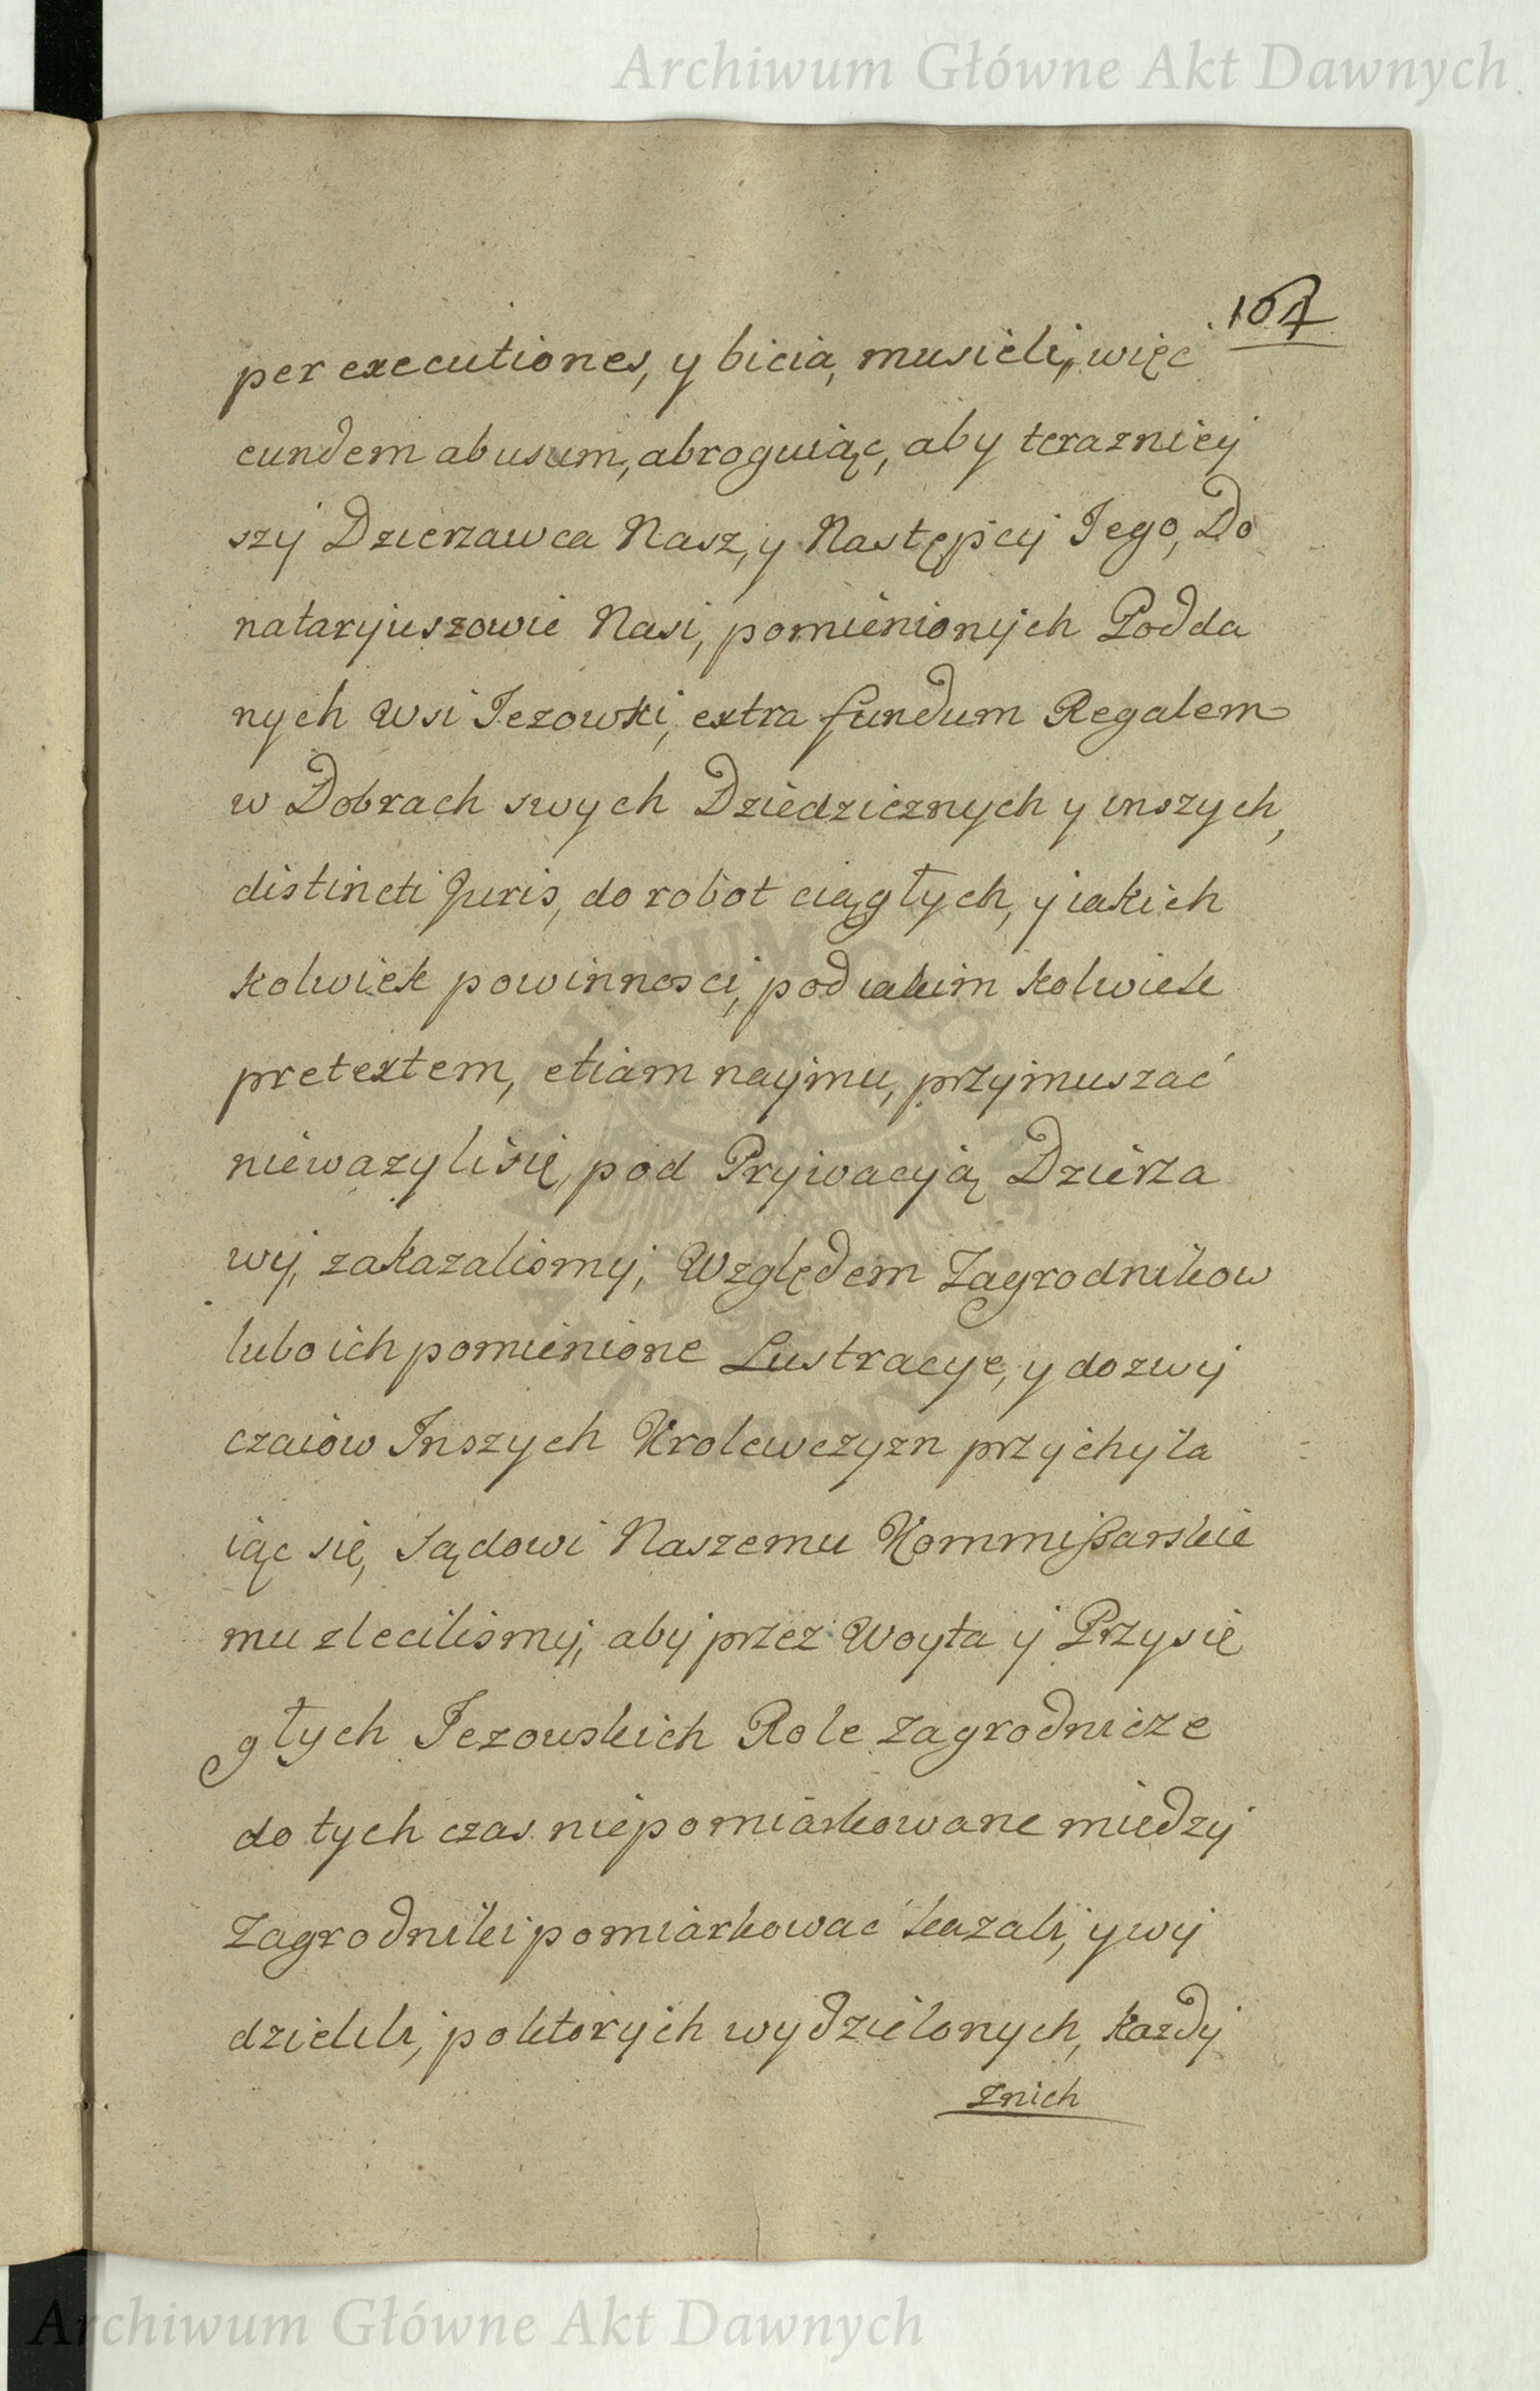 Archiwum Główne Akt Dawnych
104
per executiones, y bicia, musieli, więc
eundem abusum, abroguiąc, aby terazniey
szy Dzierzawca Nasz, y Następcy Jego, Do
nataryuszowie Nasi, pomienionych Podda
nych Wsi Jezowki, extra fundum Regalem
w Dobrach swych Dziedzicznych y inszych,
distincti Juris, do robot ciągłych, y iakich
kolwiek powinnosci, pod iakim kolwiek
pretextem, etiam naymu, przymuszać
niewazyli się, pod Prywacyią Dzierza
wy, zakazalismy, Względem Zagrodnikow
lubo ich pomienione Lustracye, y do zwy
czaiow Inszych Krolewczyzn przychyla
iąc się, Sądowi Naszemu Kommißarskie
mu zlecilismy, aby przez Woyta y Przysię
głych Jezowskich Role zagrodnicze
do tych czas niepomiarkowane miedzy
Zagrodniki pomiarkować kazali, y wy
dzielili, po ktorych wydzielonych, każdy
znich
Archiwum Główne Akt Dawnych